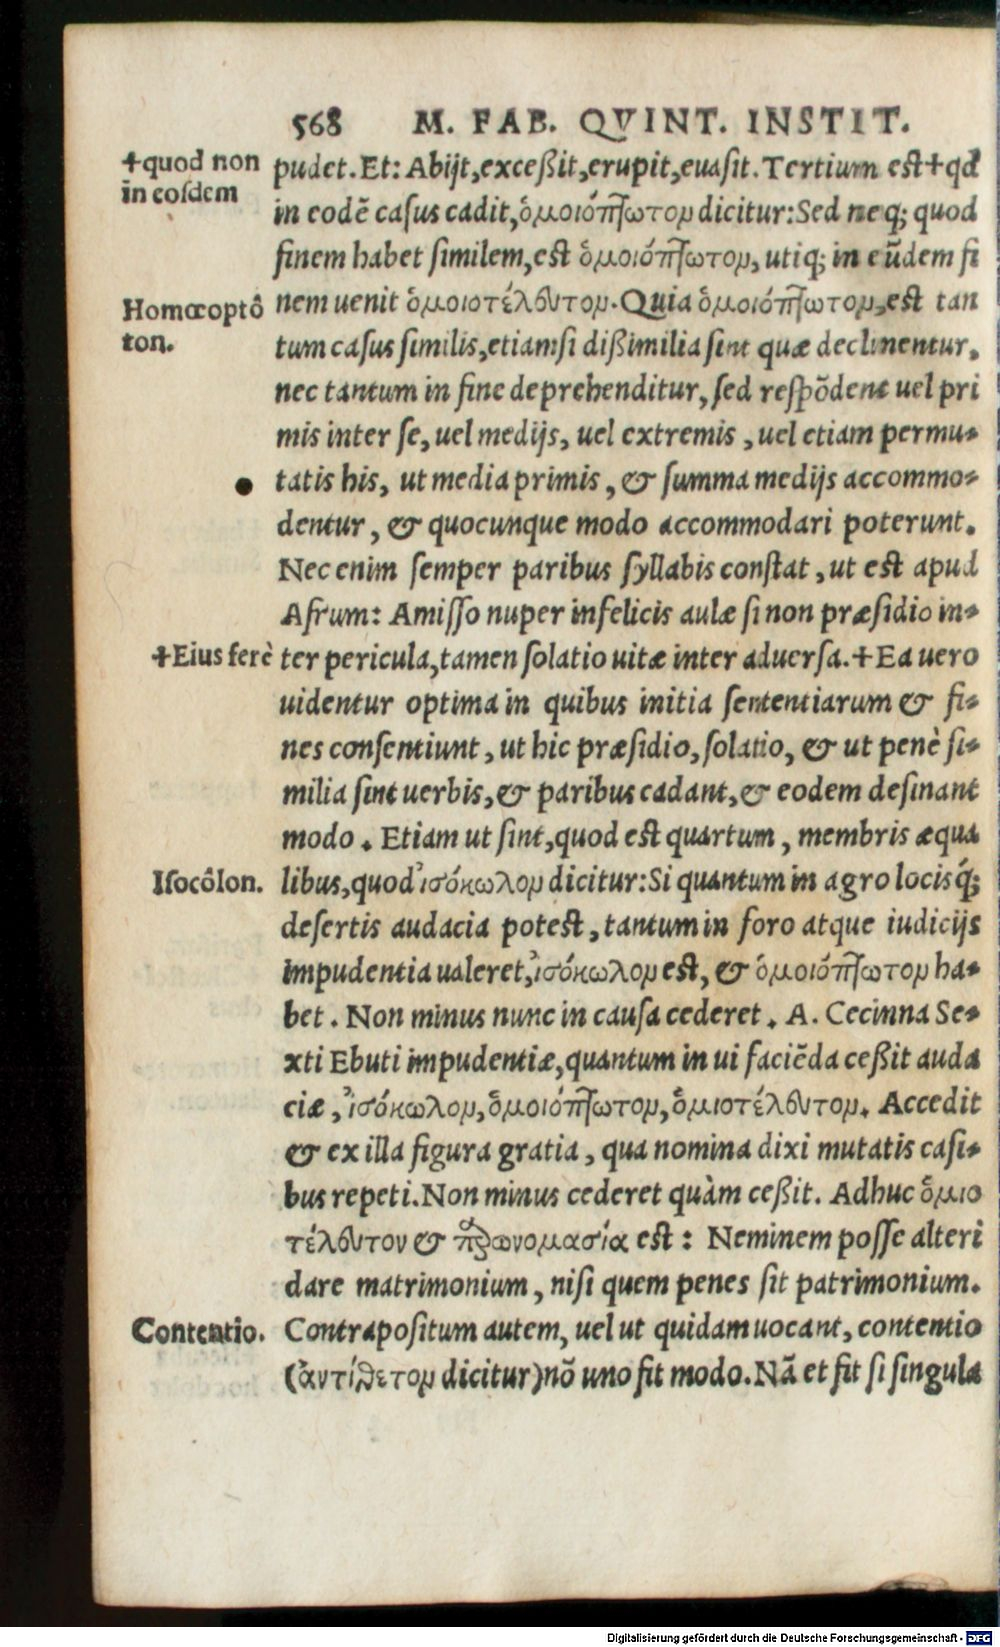 568 M. FAB. QVINT. INSTIT.
✝quod non
in eosdem
pudet. Et: Abijt, exceßit, erupit, euasit. Tertium est✝qd
in eodē casus cadit, ὁμοιόπτωτον dicitur: Sed neq; quod
finem habet similem, est ὁμοιόπτωτον, utiq; in eũdem fi
Homœoptô
ton.
nem uenit ὁμοιοτέλευτον. Quia ὁμοιόπτωτον, est tan
tum casus similis, etiamsi dißimilia sint quæ declinentur,
nec tantum in fine deprehenditur, sed respõdent uel pri
mis inter se, uel medijs, uel extremis, uel etiam permu-
tatis his, ut media primis, & summa medijs accommo-
dentur, & quocunque modo accommodari poterunt.
Nec enim semper paribus syllabis constat, ut est apud
Afrum: Amisso nuper infelicis aulæ si non præsidio in-
✝Eius ferè
ter pericula, tamen solatio uitæ inter aduersa.✝Ea uero
uidentur optima in quibus initia sententiarum & fi-
nes consentiunt, ut hic præsidio, solatio, & ut penè si-
milia sint uerbis, & paribus cadant, & eodem desinant
modo. Etiam ut sint, quod est quartum, membris æqua
Isocôlon.
libus, quod ἰσόκωλον dicitur: Si quantum in agro locisq́;
desertis audacia potest, tantum in foro atque iudicijs
impudentia ualeret, ἰσόκωλον est, & ὁμοιόπτωτον ha-
bet. Non minus nunc in causa cederet. A. Cecinna Se-
xti Ebuti impudentiæ, quantum in ui faciēda ceßit auda
ciæ, ἰσόκωλον, ὁμοιόπτωτον, ὁμιοτέλευτον. Accedit
& ex illa figura gratia, qua nomina dixi mutatis casi-
bus repeti. Non minus cederet quàm ceßit. Adhuc ὁμιο
τέλευτον & παρονομασία est: Neminem posse alteri
dare matrimonium, nisi quem penes sit patrimonium.
Contentio.
Contrapositum autem, uel ut quidam uocant, contentio
(ἀντίθετον dicitur) nõ uno fit modo. Nã et fit si singula
Digitalisierung gefördert durch die Deutsche Forschungsgemeinschaft - DFG